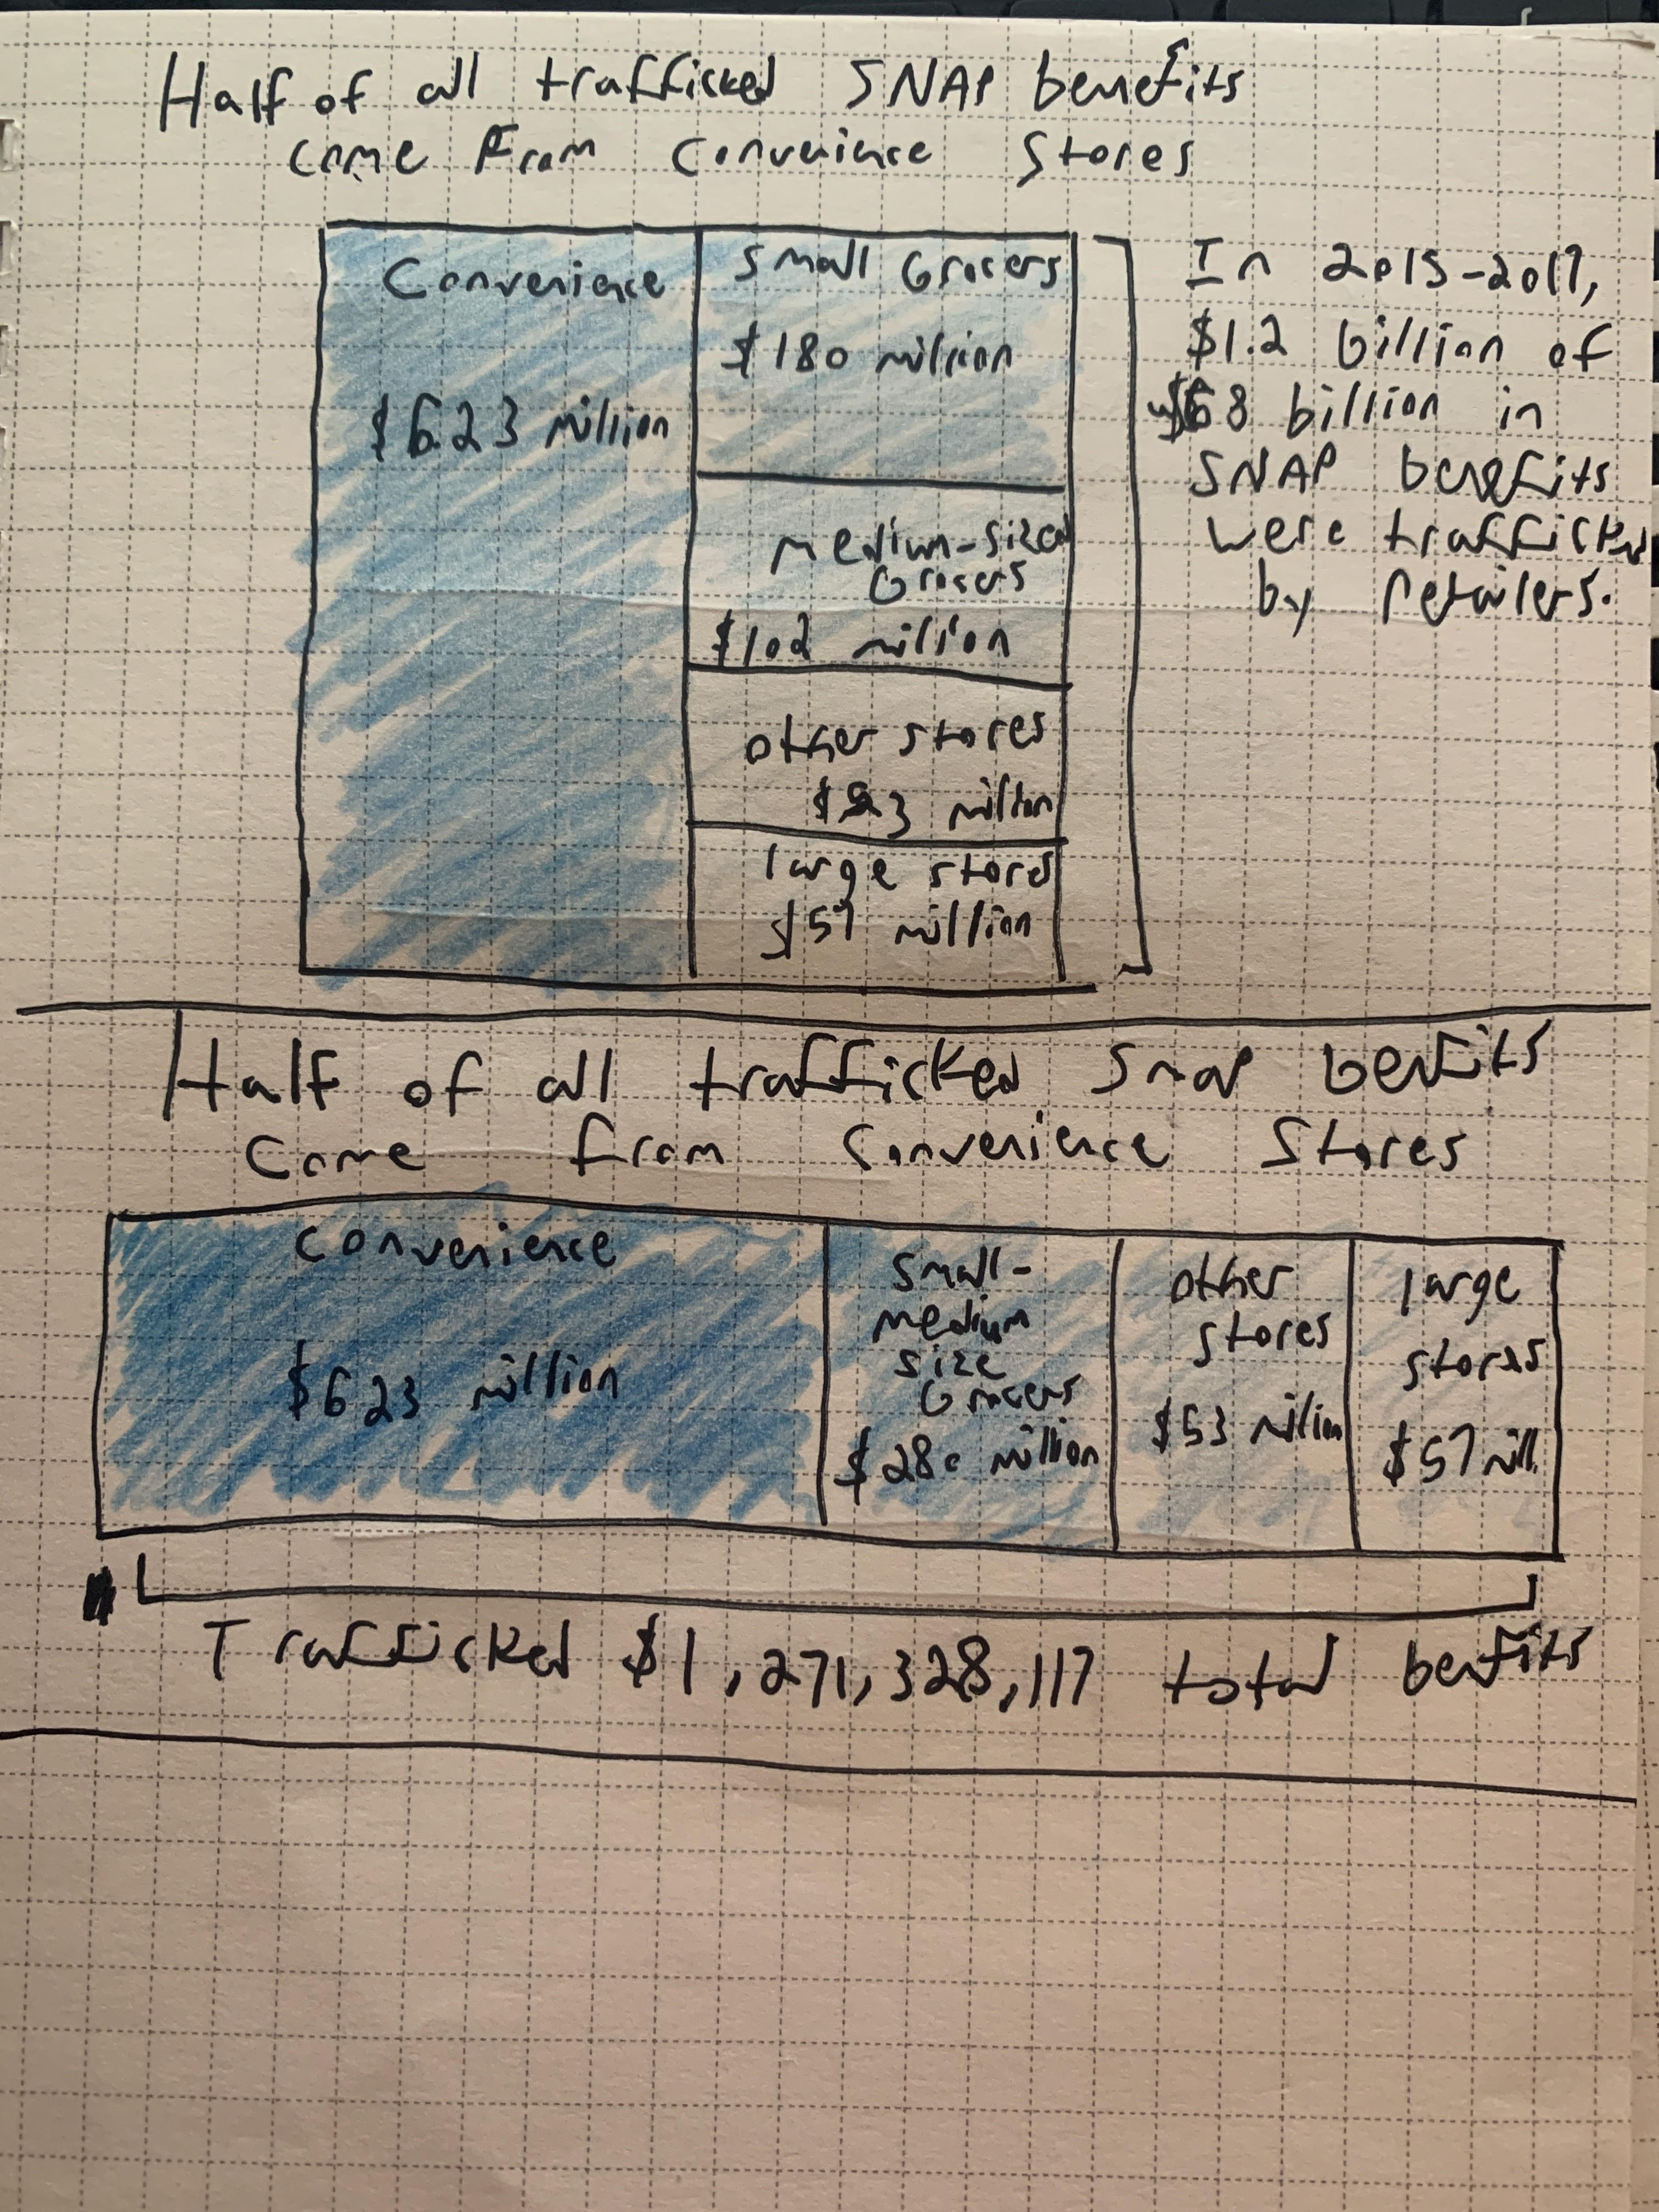 Half of all trafficked SNAP benefits
come From Convenience Stores
Convenience
$623 million
Small Grocers
$180 million
medium-sized
Grocers
$102 million
other stores
million
large stores
$57 million
In 2015-2017,
$1.2 billion of
$68 billion in
SNAP benefits
were trafficked
by retailers.
Half of all trafficked Snap benfits
Come from Convenience Stores
Convenience
$623 million
Small-
medium
size
Grocers
$280 million
other
stores
$53 million
large
stores
$57 mill.
Trafficked $1,271,328,117 total benfits